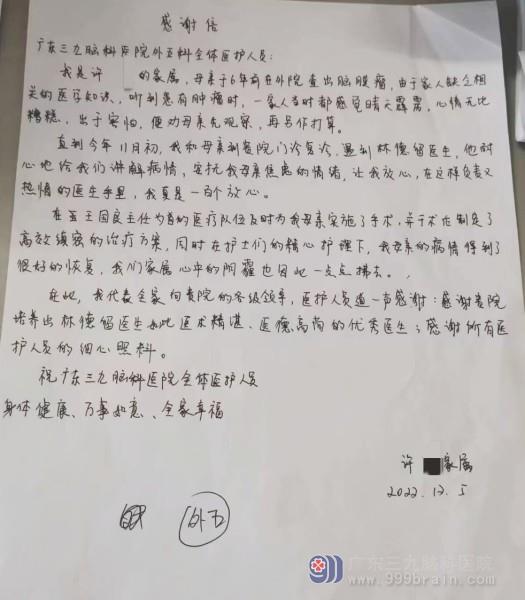 感谢信
广东三九脑科医院外五科全体医护人员:
我是许 的家属,母亲于6年前在外院查出脑膜瘤,由于家人缺乏相
关的医学知识,听到患有肿瘤时,一家人当时都感觉晴天霹雳,心情无比
糟糕,出于害怕,便劝母亲先观察,再另作打算。
直到今年11月初,我和母亲到贵院门诊复诊,遇到林德留医生,他耐
心地给我们讲解病情,安抚我母亲焦虑的情绪,让我放心,在这样负责又
热情的医生手里,我真是一百个放心。
在五王国良主任为首的医疗队伍及时为我母亲实施了手术,并于术后制定了
高效缜密的治疗方案,同时在护士们的精心护理下,我母亲的病情得到了
很好的恢复,我们家属心中的阴霾也因此一点点拂去。
在此,我代表全家向贵院的各级领导,医护人员道一声感谢:感谢贵院
培养出林德留医生如此医术精湛、医德高尚的优秀医生;感谢所有医
护人员的细心照料。
祝广东三九脑科医院全体医护人员
身体健康、万事如意、全家幸福
许 家属
2022.12.5
外五
广东三九脑科医院
www.999brain.com